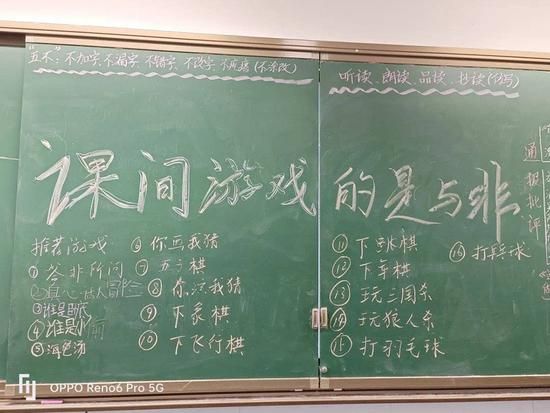 "五不":不加字、不漏字、不错字、不改字、不回读(不涂改)
听读、朗读、品读、抄读(仿写)
课间游戏的是与非
通报批评
推荐游戏
① 答非所问
② 真心话大冒险
③ 谁是卧底
④ 谁是
⑤ 海龟汤
⑥ 你画我猜
⑦ 五子棋
⑧ 你演我猜
⑨ 下象棋
⑩ 下飞行棋
⑪ 下跳棋
⑫ 下军棋
⑬ 玩三国杀
⑭ 玩狼人杀
⑮ 打羽毛球
⑯ 打乒乓球
OPPO Reno6 Pro 5G